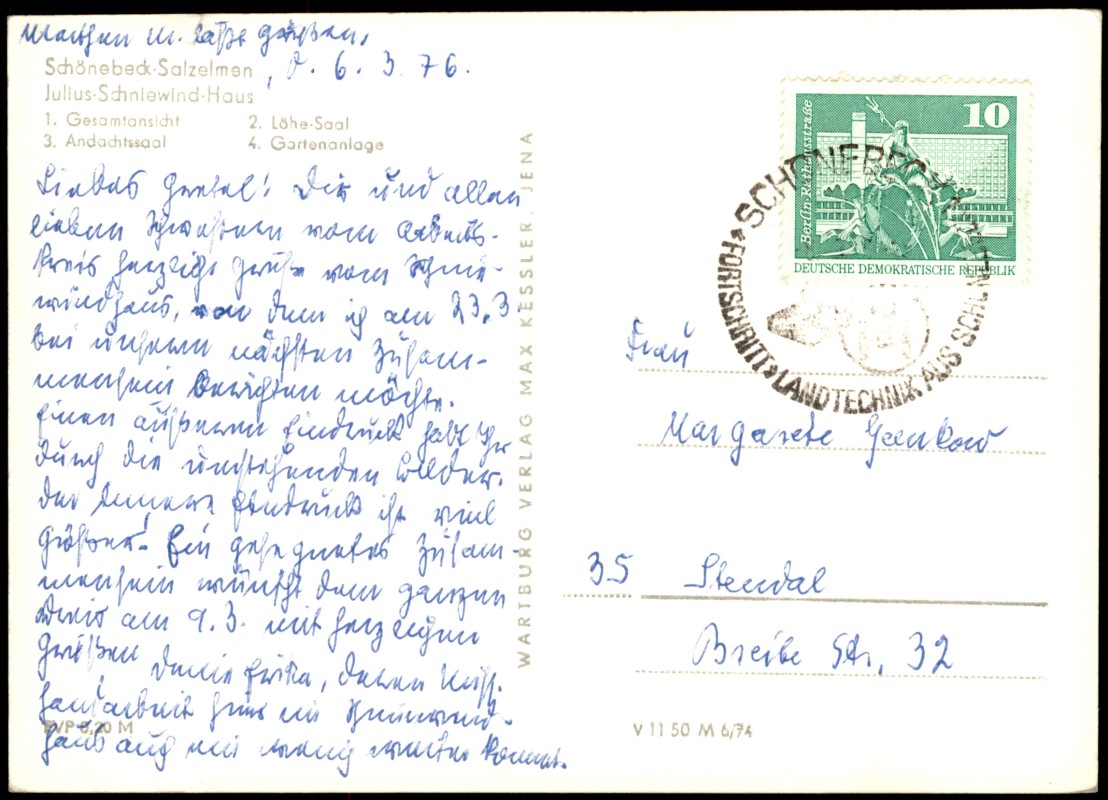 Marthen M. läßt grüßen,
d. 6. 3. 76.
Schönebeck-Salzelmen
Julius-Schniewind-Haus
1. Gesamtansicht 2. Löhe-Saal
3. Andachtssaal 4. Gartenanlage
Liebes Gretel! Dir und allen
lieben Schwestern vom Arbeits-
kreis herzliche Grüße vom Schnie-
windhaus, von dem ich am 23.3.
bei unserm nächsten Zusam-
mensein berichten möchte.
Einen äußeren Eindruck habt Ihr
durch die umstehenden Bilder.
Der innere Eindruck ist viel
größer! Ein gesegnetes Zusam-
mensein wünscht dem ganzen
Kreis am 9.3. mit herzlichen
Grüßen Deine Erika, deren
Handarbeit hier im Schniewind-
haus auch ein wenig weiter kommt.
EVP 0,20 M
WARTBURG VERLAG MAX KESSLER, JENA
V 11 50 M 6/74
10
Berlin-Rathausstraße
DEUTSCHE DEMOKRATISCHE REPUBLIK
SCHÖNEBECK
«FORTSCHRITT» LANDTECHNIK AUS SCHÖNEBECK
Frau
Margarete Geenkow
35 Stendal
Breite Str. 32